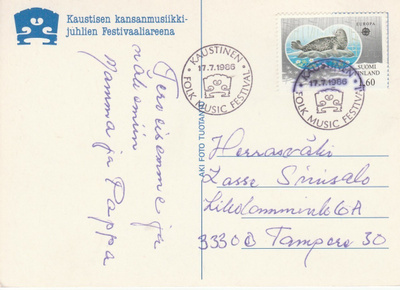 Kaustisen kansanmusiikki-
juhlien Festivaaliareena
Terveisemme ja
näkemiin
Mamma ja Pappa
KAUSTINEN
17.7.1986
FOLK MUSIC FESTIVAL
EUROPA
SUOMI
FINLAND
1.60
KAUSTINEN
17.7.1986
FOLK MUSIC FESTIVAL
FOTO TUOTAN
Herrasväki
Lasse Sinisalo
6A
33300 Tampere 30